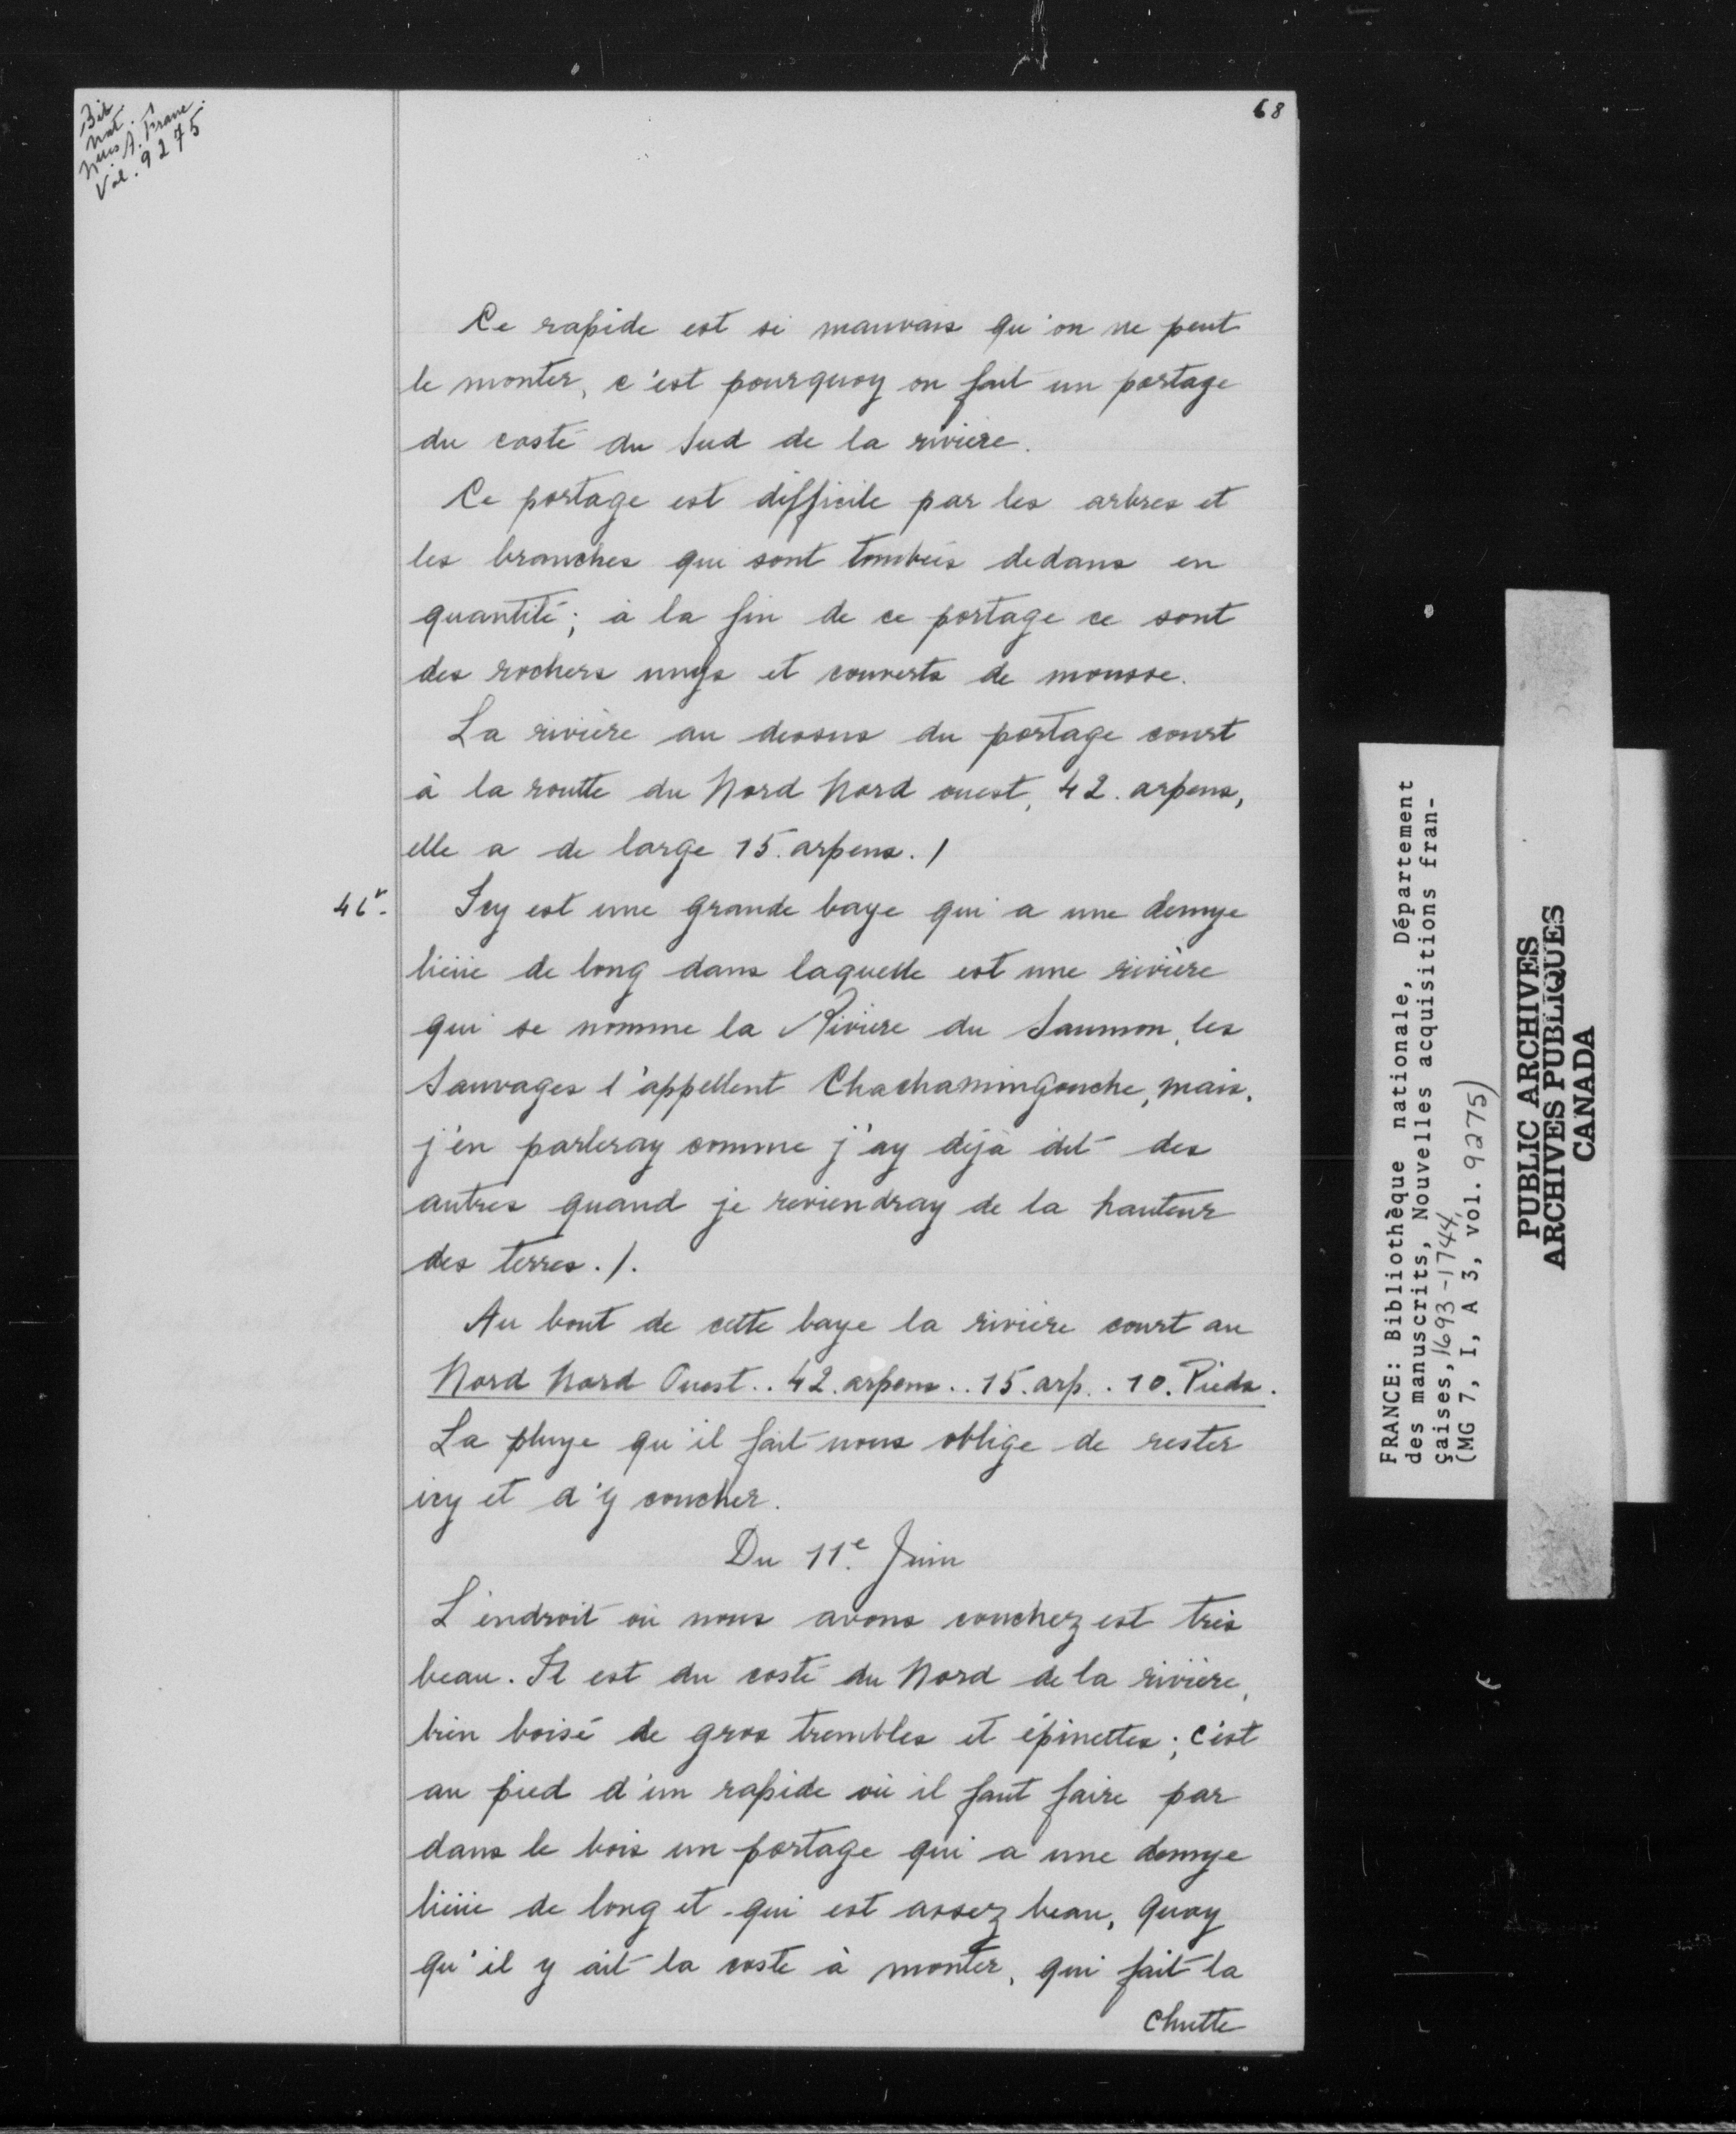 68
Bib.
Nat.
Nelles A. Franc.
Vol. 9275
Ce rapide est si mauvais qu'on ne peut
le monter, c'est pourquoy on fait un portage
du costé du Sud de la riviere.
Ce portage est difficile par les arbres et
les branches qui sont tombées dedans en
quantité; à la fin de ce portage ce sont
des rochers unys et couverts de mousse.
La rivière au dessus du portage court
à la routte du Nord Nord ouest, 42. arpens,
elle a de large 15. arpens. /
Icy est une grande baye qui a une demye
lieüe de long dans laquelle est une rivière
qui se nomme la Riviere du Saumon, les
Sauvages l'appellent Chachamingouche, mais.
j'en parleray comme j'ay déjà dit des
autres quand je reviendray de la hauteur
des terres. /.
Au bout de cette baye la rivière court au
Nord Nord Ouest.. 42. arpens.. 15. arp.. 10. Pieds.
La pluye qu'il fait nous oblige de rester
icy et d'y coucher.
Du 11e. Juin
L'endroit où nous avons couchez est très
beau. Il est du costé du Nord de la rivière,
bien boisé de gros trembles et épinettes; c'est
au pied d'un rapide où il faut faire par
dans le bois un portage qui a une demye
lieüe de long et qui est assez beau, quoy
qu'il y ait la coste à monter, qui fait la
chutte
FRANCE: Bibliothèque nationale, Département
des manuscrits, Nouvelles acquisitions fran-
çaises, 1693-1744,
(MG 7, I, A 3, vol. 9275)
PUBLIC ARCHIVES
ARCHIVES PUBLIQUES
CANADA